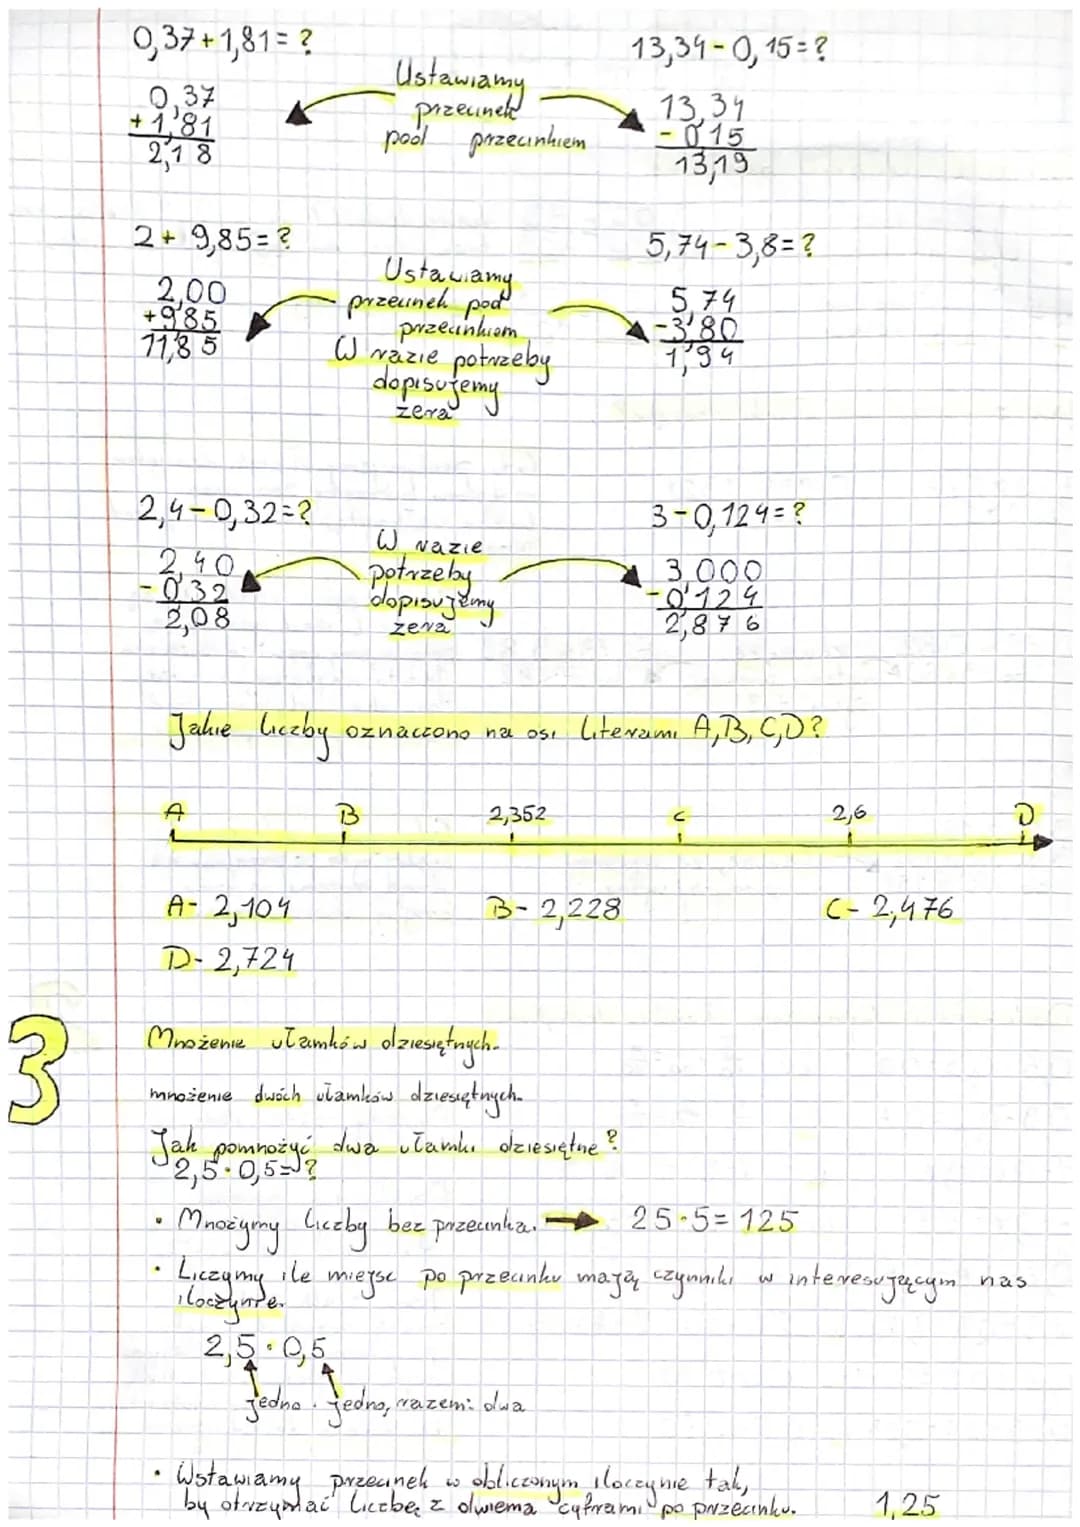 0,37+1,81=?
13,34-0,15=?
Ustawiamy
przecinek
pod przecinkiem
0,37
+1,81
2,18
13,34
-0,15
13,19
2+9,85=?
5,74-3,8=?
Ustawiamy
przecinek pod
przecinkiem
W razie potrzeby
dopisujemy
zera
2,00
+9,85
11,85
5,74
-3,80
1,94
2,4-0,32=?
3-0,124=?
W razie
potrzeby
dopisujemy
zera
2,40
-0,32
2,08
3,000
-0,124
2,876
Jakie liczby oznaczono na osi literami A,B,C,D?
A B 2,352 C 2,6 D
A- 2,104 B- 2,228 C- 2,476
D- 2,724
3
Mnożenie ułamków dziesiętnych.
mnożenie dwóch ułamków dziesiętnych.
Jak pomnożyć dwa ułamki dziesiętne?
2,5·0,5=?
• Mnożymy liczby bez przecinka. → 25·5=125
• Liczymy ile miejsc po przecinku mają czynniki w interesującym nas
iloczynie.
2,5·0,5
jedno . jedno, razem: dwa
• Wstawiamy przecinek w obliczonym iloczynie tak,
by otrzymać liczbę z dwiema cyframi po przecinku. 1,25